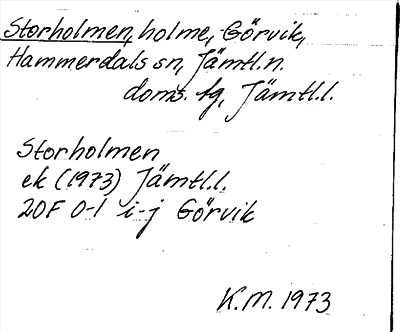 Storholmen, holme, Görvik,
Hammerdals sn, Jämtl.n.
doms. fg, Jämtl.l.
Storholmen
ek (1973) Jämtl.l.
20F 0-1 i-j Görvik
K.M. 1973